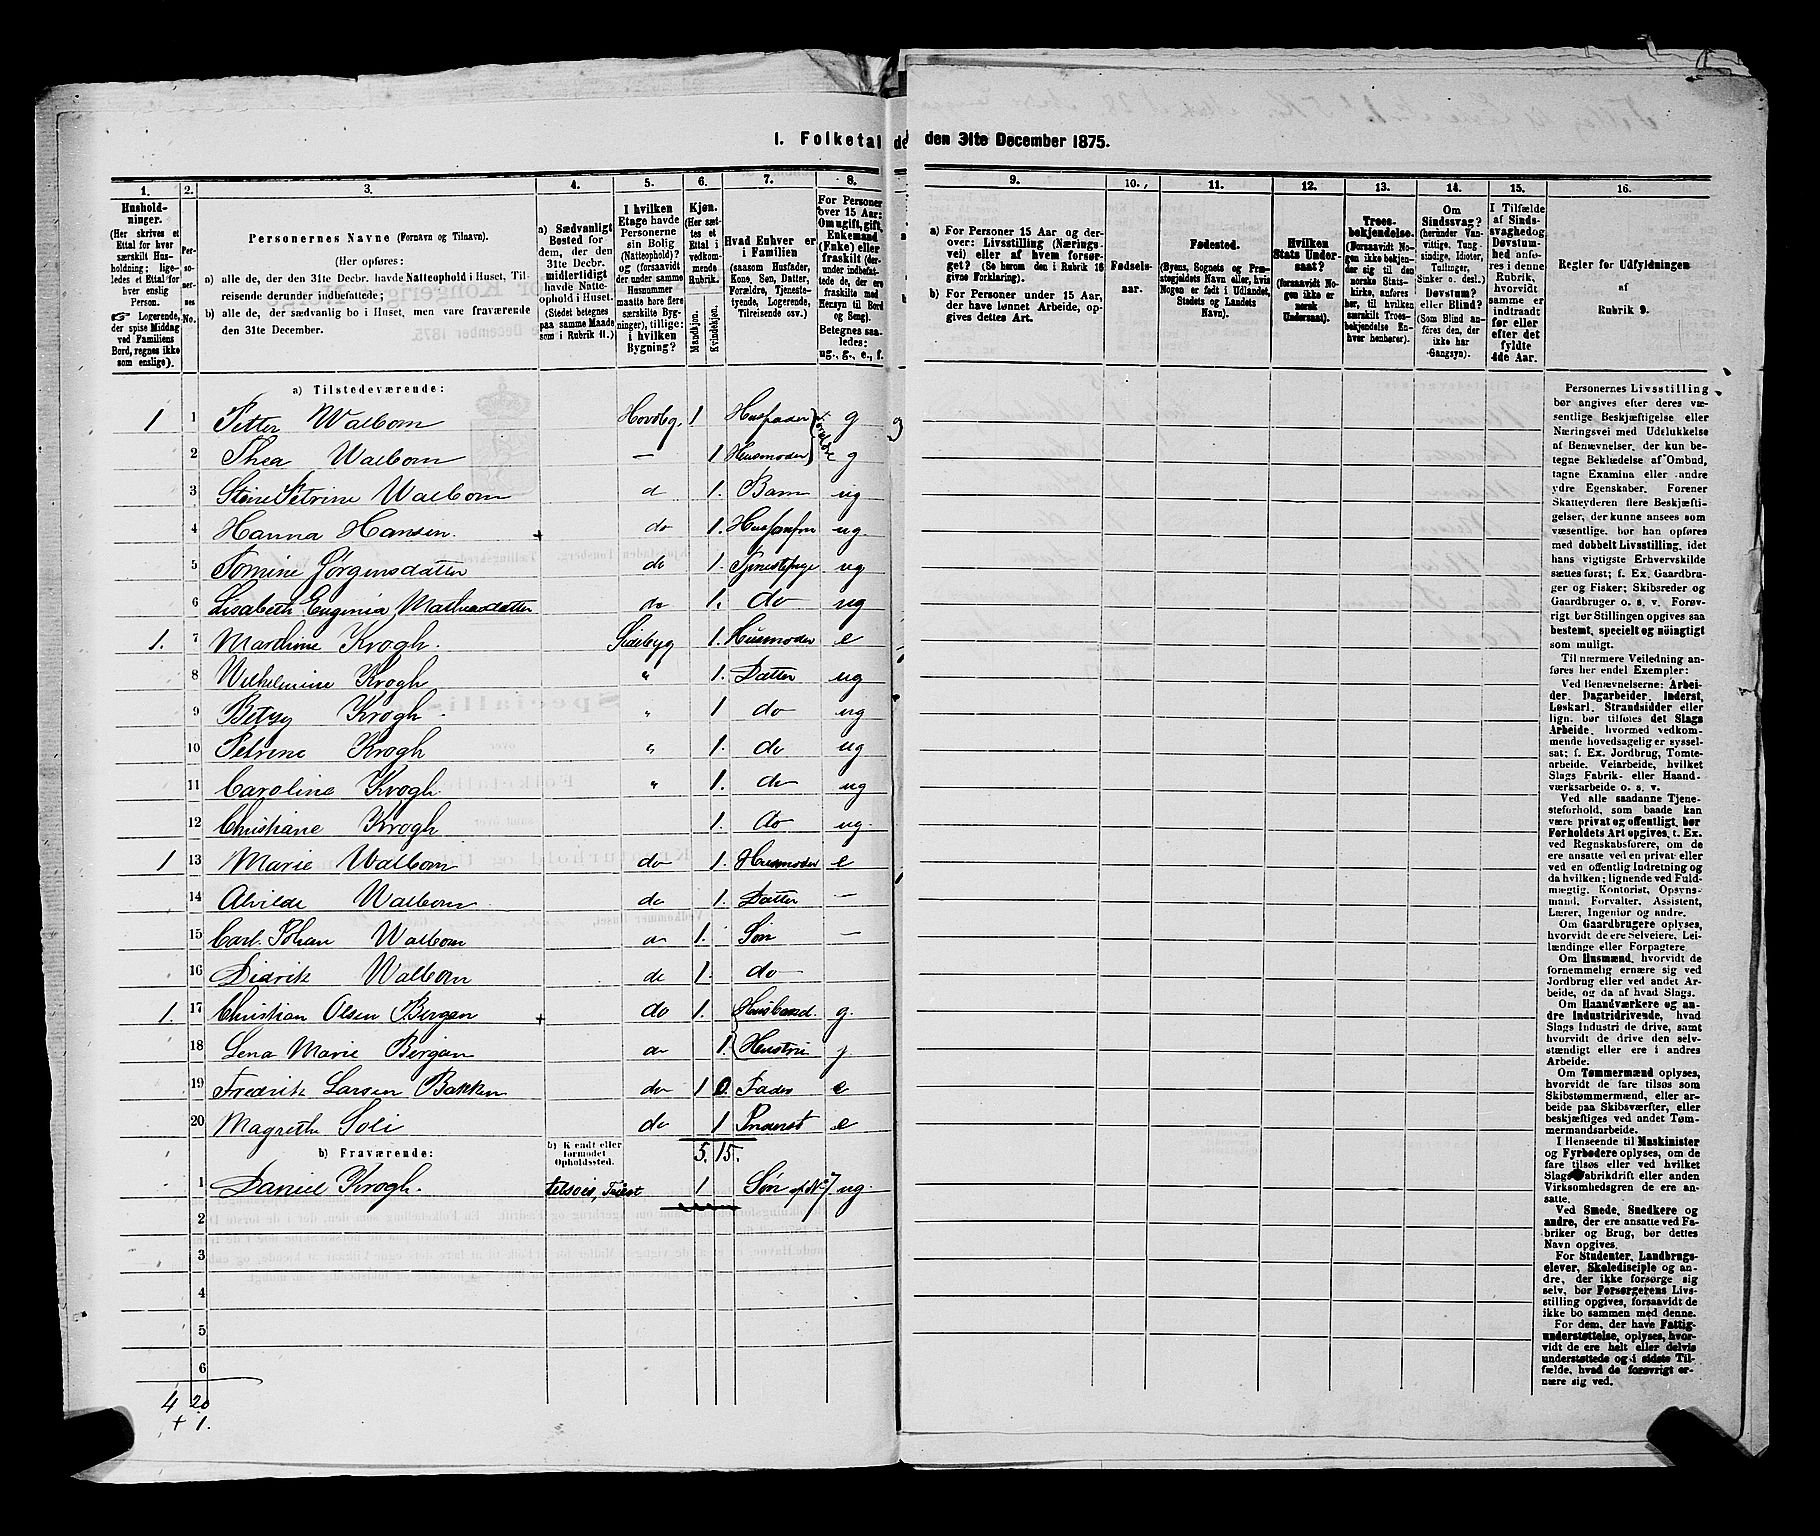 I. Folketal de
den 31te December 1875.
1. 2. 3. 4. 5. 6. 7. 8.
Hushold-
ninger.
(Her skrives et
Ettal for hver
særskilt Hus-
holdning; lige-
ledes et Ettal for
hver enslig
Person.
☞ Logerende,
der spise Middag
ved Familiens
Bord, regnes ikke
som enslige).
Per-
so-
ner-
nes
No.
Personernes Navne (Fornavn og Tilnavn).
(Her opføres:
a) alle de, der den 31te Decbr. havde Natteophold i Huset, Til-
reisende derunder indbefattede;
b) alle de, der sædvanlig bo i Huset, men vare fraværende
den 31te December.
a) Sædvanligt
Bosted for
dem, der den
31te Decbr.
midlertidigt
havde Natte-
ophold i Huset.
(Stedet betegnes
paa samme Maade
som i Rubrik 11.)
I hvilken
Etage havde
Personerne
sin Bolig
(Natteophold)?
og (forsaavidt
der under samme
Husnummer
maatte høre flere
særskilte Byg-
ninger), tillige: i
hvilken
Bygning?
Kjøn.
(Her sæt-
tes et
Ettal i
vedkom-
mende
Rubrik.)
Mandkjøn.
Kvindekjøn.
Hvad Enhver er
i Familien
(saasom Husfader,
Kone, Søn, Datter,
Forældre, Tjeneste-
tyende, Logerende,
Tilreisende osv.)
For Personer
over 15 Aar:
Om ugift, gift,
Enkemand
(Enke) eller
fraskilt (der-
under indbefat-
tede de, der
ere fraskilte
med Hensyn
til Bord
og Seng)
Betegnes saa-
ledes:
ug., g., e., f.
a) Tilstedeværende:
1 1 Petter Walbom Hovdbg. 1 Husfader g
2 Thea Walbom — 1. Husmoder g
3 Stine Petrine Walbom d 1. Barn ug
4 Hanna Hansen. + do 1. ug
5 Tomine Jørgensdatter do 1. ug
6 Lisabeth Eugenia do 1. do ug
1. 7 Marthine Krogh. Sidebyg 1. Husmoder e
8 Wilhelmine Krogh " 1. Datter ug
9 Betzy Krogh " 1 do ug
10 Petrine Krogh " 1. do ug
11 Caroline Krogh " 1. do ug
12 Christiane Krogh 1. do ug.
1 13 Marie Walbom do 1. Husmoder e
14 Alvilde Walbom do 1. Datter —
15 Carl Johan Walbom do 1. Søn —
16 Didrik Walbom do 1. do —
1. 17 Christian Olsen Bergan + do 1. Husbond. g.
18 Lena Marie Bergan do 1. Hustru g
19 Fredrik Larsen Bakken do 1 0. Fader e
20 Magrethe Soli do 1 Inderst e
5. 15.
b) Fraværende:
b) Kendt eller
formodet
Opholdssted.
1 Daniel Krogh. tilsøes, Triest 1 Søn af No 7 ug.
2
3
4
5
6
4 20
+ 1.
9. 10. 11. 12. 13. 14. 15. 16.
a) For Personer 15 Aar og der-
over: Livsstilling (Nærings-
vei) eller af hvem forsør-
get? (Se herom den i Rubrik 16
givne Forklaring).
b) For Personer under 15 Aar,
der have lønnet Arbeide, op-
gives dettes Art.
Fødsels-
aar.
Fødested.
(Byens, Sognets og Præ-
stegjeldets Navn eller, hvis
Nogen er født i Udlandet,
Stedets og Landets
Navn).
Hvilken
Stats Under-
saat?
(forsaavidt No-
gen ikke er
norsk
Undersaat).
Troes-
bekjendelse.
(Forsaavidt No-
gen ikke bekjen-
der sig til den
norske Stats-
kirke, anfø-
res her, til
hvilket
særskilt Troes-
bekjendelse En-
hver henhører).
Om
Sindssvag?
(herunder Van-
vittige, Tung-
sindige, Idioter,
Tullinger,
Sinker o. desl.)
Døvstum?
eller Blind?
(Som Blind an-
føres den, der
ikke har
Gangsyn).
I Tilfælde
af Sinds-
svaghed og
Døvstum-
hed anfø-
res i denne
Rubrik,
hvorvidt
samme er
indtraadt
før eller
efter det
fyldte
4de Aar.
Regler for Udfyldningen
af
Rubrik 9.
Personernes Livsstilling
bør angives efter deres væ-
sentlige Beskjæftigelse eller
Næringsvei med Udelukkelse
af Benævnelser, der kun be-
tegne Beklædelse af Ombud,
tagne Examina eller andre
ydre Egenskaber. Forener
Skatteyderen flere Beskjæfti-
gelser, der kunne ansees som
væsentlige, bør han opføres
med dobbelt Livsstilling, idet
hans vigtigste Erhvervskilde
sættes først; f. Ex. Gaardbru-
ger og Fisker; Skibsreder og
Gaardbruger o. s. v. Forøv-
rigt bør Stillingen opgives saa
bestemt, specielt og nøiagtigt
som muligt.
Til nærmere Veiledning an-
føres her endel Exempler:
Ved Benævnelserne: Arbei-
der, Dagarbeider, Inderst,
Løskarl, Strandsidder eller
lign. bør tilføies det Slags
Arbeide, hvormed vedkom-
mende hovedsagelig er syssel-
sat; f. Ex. Jordbrug, Tomte-
arbeide, Veiarbeide, hvilket
Slags Fabrik- eller Haand-
værksarbeide o. s. v.
Ved alle saadanne Tjene-
steforhold, som baade kan
være privat og offentligt, bør
Forholdets Art opgives, t. Ex.
ved Regnskabsførere, om de
ere ansatte ved en privat eller
ved en offentlig Indretning og
da hvilken; lignende ved Fuld-
mægtig, Kontorist, Opsyns-
mand, Forvalter, Assistent,
Lærer, Ingeniør og andre.
Om Gaardbrugere oplyses,
hvorvidt de ere Selveiere, Lei-
lændinge eller Forpagtere.
Om Husmænd, hvorvidt de
fornemmelig ernære sig ved
Jordbrug eller ved andet Ar-
beide, og da af hvad Slags.
Om Haandværkere og an-
dre Industridrivende, hvad
Slags Industri de drive, samt
hvorvidt de drive den selv-
stændigt eller ere i andres
Arbeide.
Om Tømmermænd oplyses,
hvorvidt de fare tilsøs som
Skibstømmermænd, eller ar-
beide paa Skibsværfter, eller
beskjæftiges ved andet Tøm-
mermandsarbeide.
I Henseende til Maskinister
og Fyrbødere oplyses, om de
fare tilsøs eller ved hvilket
Slags Fabrikdrift eller anden
Virksomhedsgren de ere an-
satte.
Ved Smede, Snedkere og
andre, der ere ansatte ved Fa-
briker og Brug, bør dettes
Navn opgives.
For Studenter, Landbrugs-
elever, Skoledisciple og an-
dre, der ikke forsørge sig
selv, bør Forsørgerens Livs-
stilling opgives, forsaavidt de
ikke bo sammen med denne.
For dem, der have Fattig-
understøttelse, oplyses, hvor-
vidt de ere helt eller delvis
understøttede og i sidste Til-
fælde, hvad de forøvrigt er-
nære sig ved.